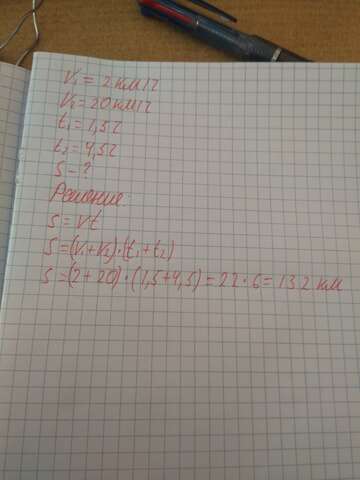 V₁ = 2 км/ч
V₂ = 20 км/ч
t₁ = 1,5 ч
t₂ = 4,5 ч
S - ?
Решение:
S = Vt
S = (V₁ + V₂) · (t₁ + t₂)
S = (2 + 20) · (1,5 + 4,5) = 22 · 6 = 132 км